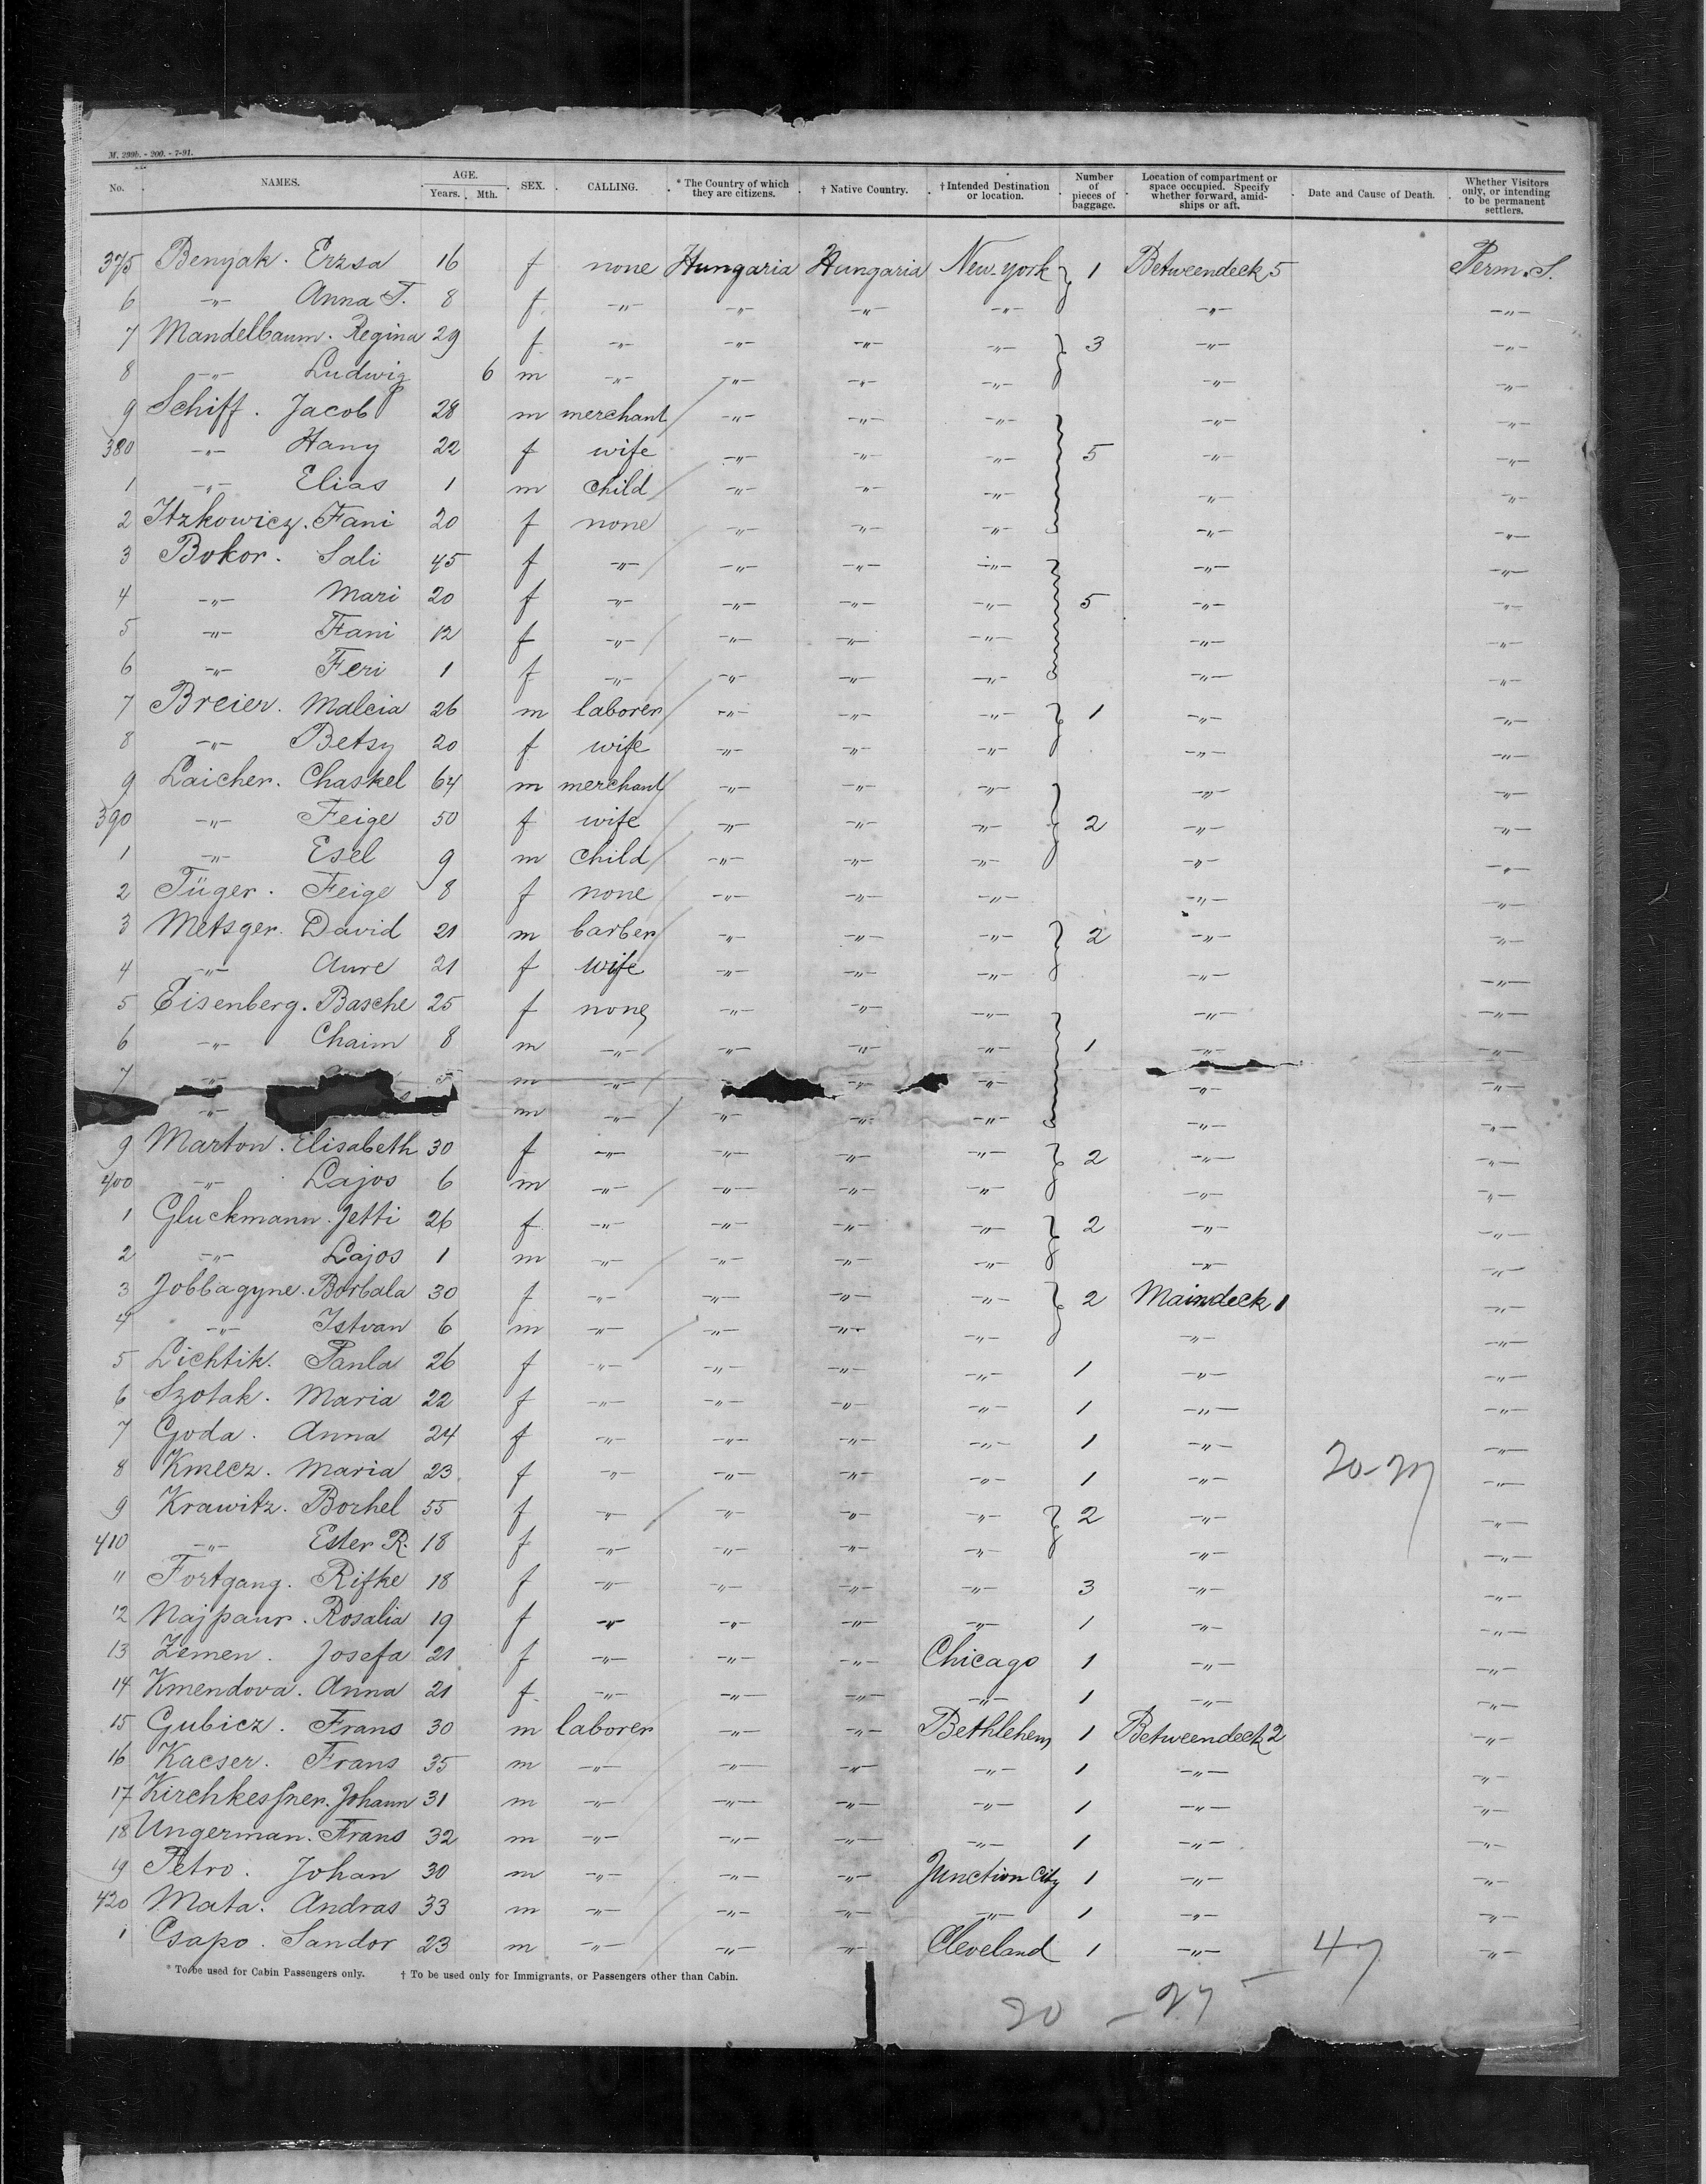 M. 299b. - 200. - 7-91.
No. NAMES. AGE. Years. Mth. SEX. CALLING. * The Country of which they are citizens. † Native Country. † Intended Destination or location. Number of pieces of baggage. Location of compartment or space occupied. Specify whether forward, amidships or aft. Date and Cause of Death. Whether Visitors only, or intending to be permanent settlers.
375 Benyak. Erzsa 16 f none Hungaria Hungaria New York 1 Betweendeck 5 Perm. S.
6 -"- Anna T. 8 f -"- -"- -"- -"- -"- -"-
7 Mandelbaum. Regina 29 f -"- -"- -"- -"- 3 -"- -"-
8 -"- Ludwig 6 m -"- -"- -"- -"- -"- -"-
9 Schiff. Jacob 28 m merchant -"- -"- -"- -"- -"-
380 -"- Hany 22 f wife -"- -"- -"- 5 -"- -"-
1 -"- Elias 1 m child -"- -"- -"- -"- -"-
2 Itzkowicz. Fani 20 f none -"- -"- -"- -"- -"-
3 Bokor. Sali 45 f -"- -"- -"- -"- -"- -"-
4 -"- Mari 20 f -"- -"- -"- -"- 5 -"- -"-
5 -"- Fani 12 f -"- -"- -"- -"- -"- -"-
6 -"- Feri 1 f -"- -"- -"- -"- -"- -"-
7 Breier. Malcia 26 m laborer -"- -"- -"- 1 -"- -"-
8 -"- Betsy 20 f wife -"- -"- -"- -"- -"-
9 Laicher. Chaskel 64 m merchant -"- -"- -"- -"- -"-
390 -"- Feige 50 f wife -"- -"- -"- 2 -"- -"-
1 -"- Esel 9 m child -"- -"- -"- -"- -"-
2 Tüger. Feige 8 f none -"- -"- -"- -"- -"-
3 Metsger. David 21 m barber -"- -"- -"- 2 -"- -"-
4 -"- Aure 21 f wife -"- -"- -"- -"- -"-
5 Eisenberg. Basche 25 f none -"- -"- -"- -"- -"-
6 -"- Chaim 8 m -"- -"- -"- -"- 1 -"- -"-
7 -"- m -"- -"- -"- -"- -"-
-"- m -"- -"- -"- -"- -"- -"-
9 Marton. Elisabeth 30 f -"- -"- -"- -"- 2 -"- -"-
400 -"- Lajos 6 m -"- -"- -"- -"- -"- -"-
1 Gluckmann. Jetti 26 f -"- -"- -"- -"- 2 -"- -"-
2 -"- Lajos 1 m -"- -"- -"- -"- -"- -"-
3 Jobbagyne. Borbala 30 f -"- -"- -"- -"- 2 Maindeck 1 -"-
4 -"- Istvan 6 m -"- -"- -"- -"- -"- -"-
5 Lichtik. Panla 26 f -"- -"- -"- -"- 1 -"- -"-
6 Szotak. Maria 22 f -"- -"- -"- -"- 1 -"- -"-
7 Goda. Anna 24 f -"- -"- -"- -"- 1 -"- -"-
8 Kmecz. Maria 23 f -"- -"- -"- -"- 1 -"- 20-27 -"-
9 Krawitz. Borhel 55 f -"- -"- -"- -"- 2 -"- -"-
410 -"- Ester R. 18 f -"- -"- -"- -"- -"- -"-
11 Fortgang. Rifke 18 f -"- -"- -"- -"- 3 -"- -"-
12 Najpaur. Rosalia 19 f -"- -"- -"- -"- 1 -"- -"-
13 Zemen. Josefa 21 f -"- -"- -"- Chicago 1 -"- -"-
14 Kmendova. Anna 21 f -"- -"- -"- -"- 1 -"- -"-
15 Gubicz. Frans 30 m laborer -"- -"- Bethlehem 1 Betweendeck 2 -"-
16 Kacser. Frans 35 m -"- -"- -"- -"- 1 -"- -"-
17 Kirchkessner. Johann 31 m -"- -"- -"- -"- 1 -"- -"-
18 Ungerman. Frans 32 m -"- -"- -"- -"- 1 -"- -"-
19 Petro. Johan 30 m -"- -"- -"- Junction City 1 -"- -"-
420 Mata. Andras 33 m -"- -"- -"- -"- 1 -"- -"-
1 Csapo. Sandor 23 m -"- -"- -"- Cleveland 1 -"- 47 -"-
* To be used for Cabin Passengers only. † To be used only for Immigrants, or Passengers other than Cabin.
20 - 27